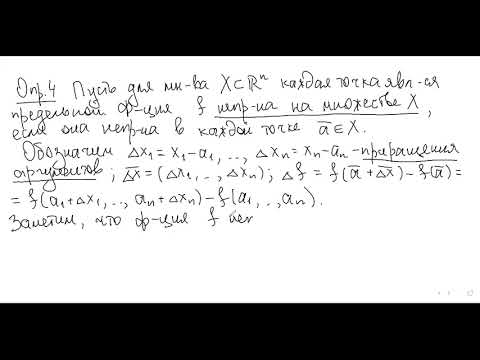 Опр.4 Пусть для мн-ва X⊂ℝⁿ каждая точка явл-ся
предельной. Ф-ция f непр-на на множестве X,
если она непр-на в каждой точке a̅∈X.
Обозначим Δx₁=x₁-a₁, .., Δxₙ=xₙ-aₙ-приращения
аргументов; Δ̅x̅=(Δx₁, .., Δxₙ); Δf=f(a̅+Δ̅x̅)-f(a̅)=
=f(a₁+Δx₁, .., aₙ+Δxₙ)-f(a₁, .., aₙ).
Заметим, что ф-ция f неп